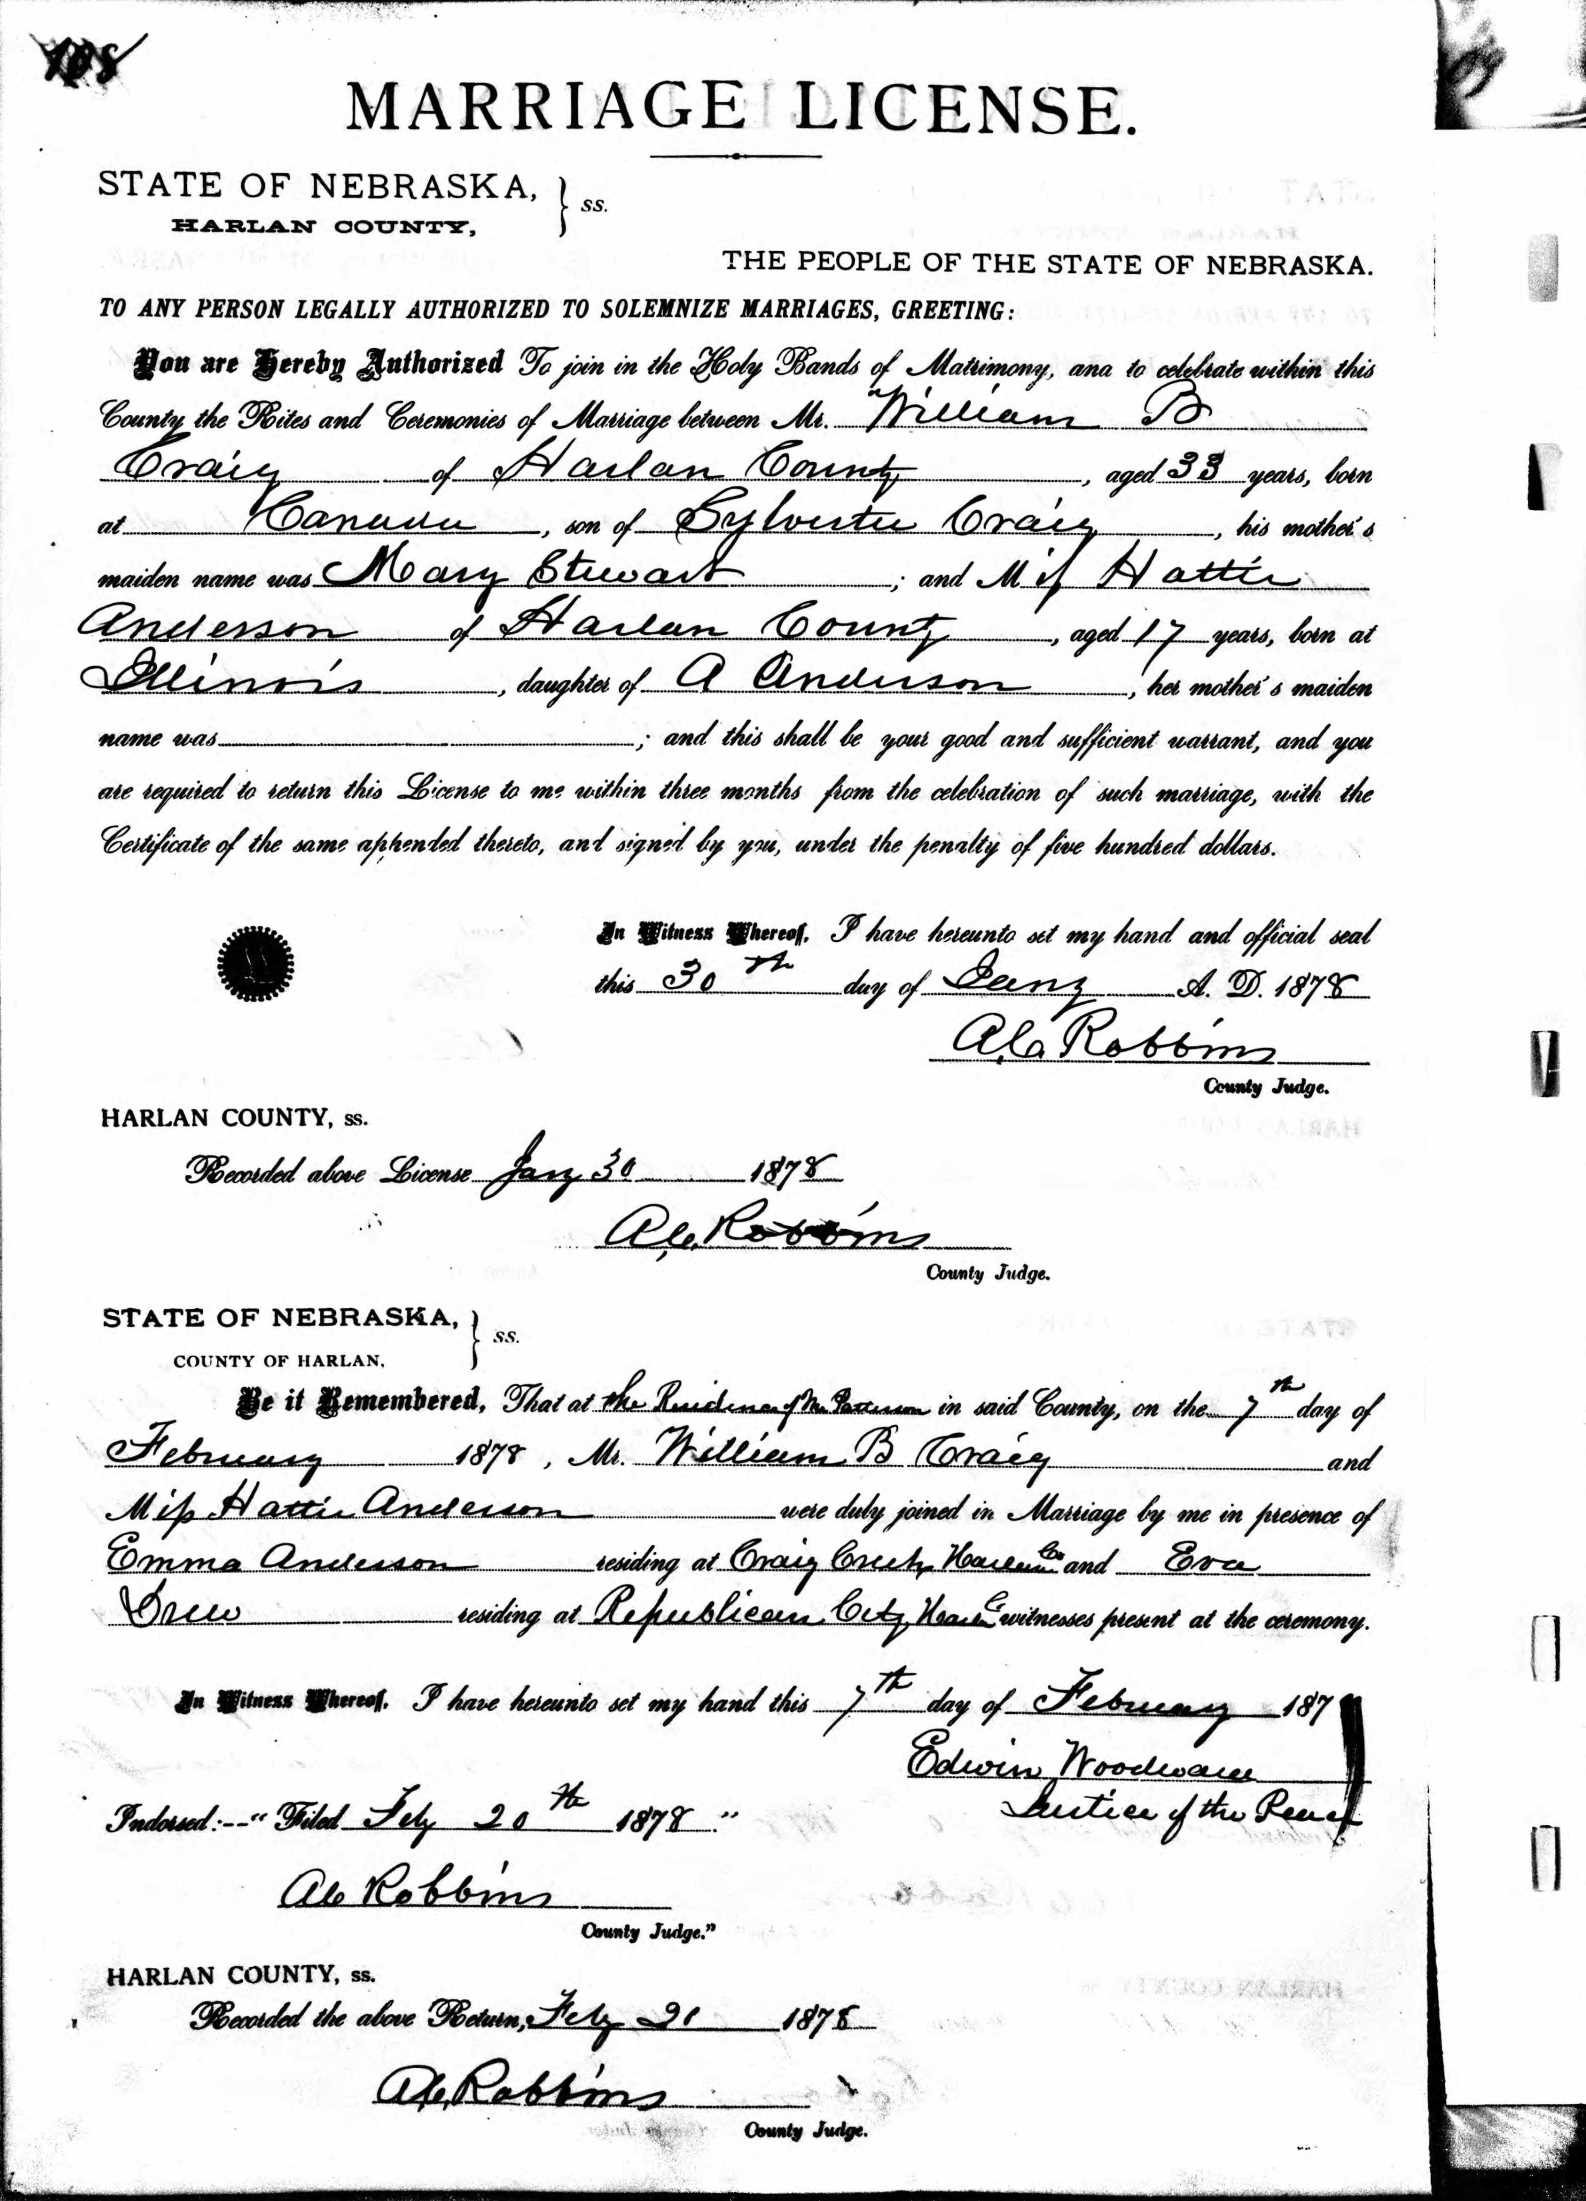 108
MARRIAGE LICENSE.
STATE OF NEBRASKA,
HARLAN COUNTY, } ss.
THE PEOPLE OF THE STATE OF NEBRASKA.
TO ANY PERSON LEGALLY AUTHORIZED TO SOLEMNIZE MARRIAGES, GREETING:
You are Hereby Authorized To join in the Holy Bands of Matrimony, and to celebrate within this
County the Rites and Ceremonies of Marriage between Mr. William B
Craig of Harlan County, aged 33 years, born
at Canada, son of Sylvester Craig, his mother's
maiden name was Mary Stewart; and Miss Hattie
Anderson of Harlan County, aged 17 years, born at
Illinois, daughter of A Anderson, her mother's maiden
name was ; and this shall be your good and sufficient warrant, and you
are required to return this License to me within three months from the celebration of such marriage, with the
Certificate of the same appended thereto, and signed by you, under the penalty of five hundred dollars.
In Witness Whereof, I have hereunto set my hand and official seal
this 30th day of Jany A. D. 1878
A.C. Robbins
County Judge.
HARLAN COUNTY, ss.
Recorded above License Jany 30 1878
A.C. Robbins
County Judge.
STATE OF NEBRASKA,
COUNTY OF HARLAN. } ss.
Be it Remembered, That at the Residence of Mr Patterson in said County, on the 7th day of
February 1878, Mr. William B Craig and
Miss Hattie Anderson were duly joined in Marriage by me in presence of
Emma Anderson residing at Craig Creek, Harlan Co and Eva
Drew residing at Republican City, Harlan Co witnesses present at the ceremony.
In Witness Whereof, I have hereunto set my hand this 7th day of February 187
Edwin Woodward
Justice of the Peace
Indorsed:--"Filed Feby 20th 1878."
A C Robbins
County Judge."
HARLAN COUNTY, ss.
Recorded the above Return, Feby 21 1878
A.C. Robbins
County Judge.